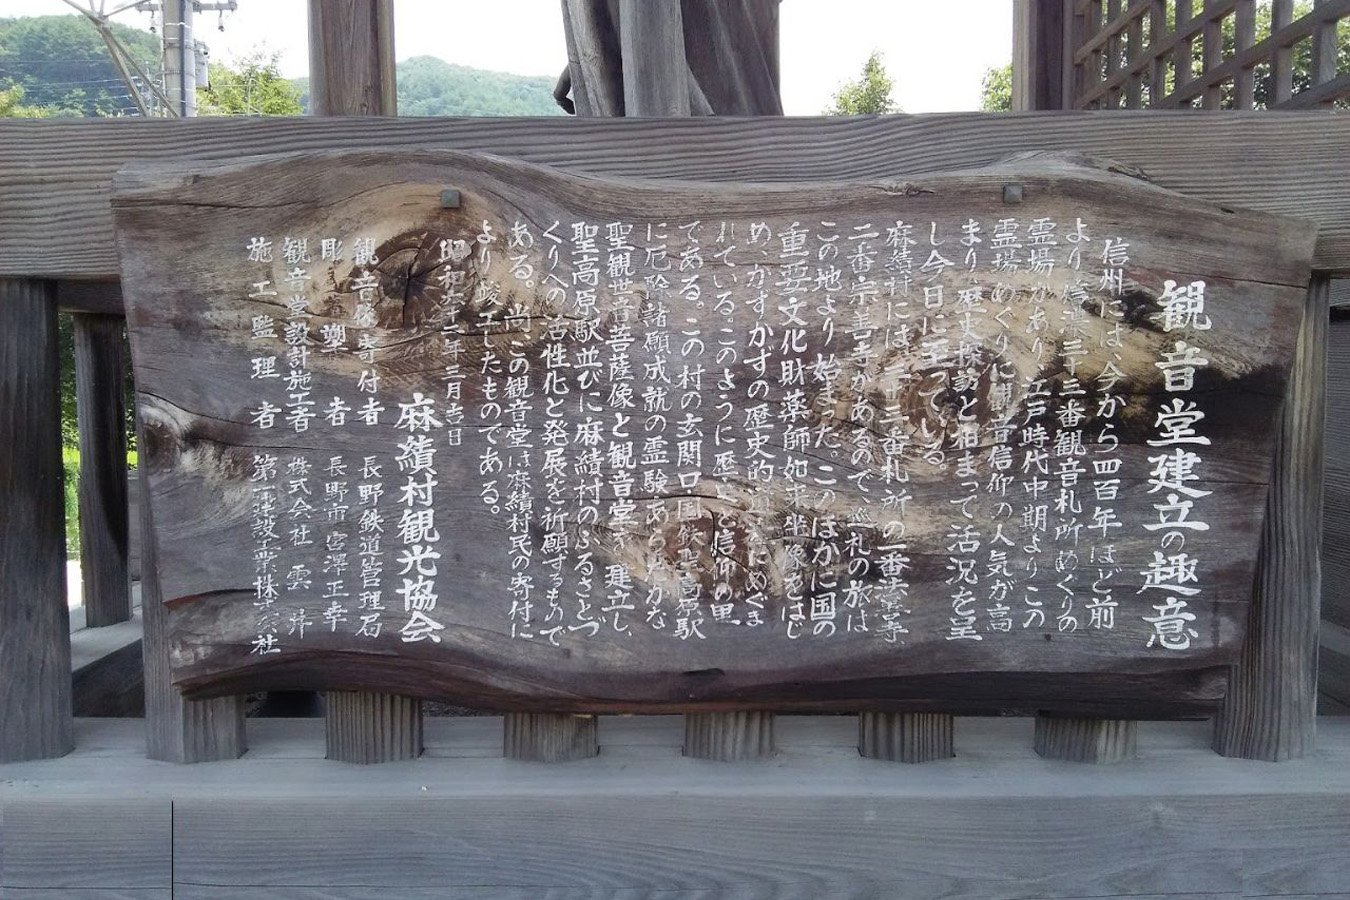 観音堂建立の趣意
信州には、今から四百年ほど前
より信濃三十三番観音札所めぐりの
霊場があり、江戸時代中期よりこの
霊場めぐりに観音信仰の人気が高
まり、歴史探訪と相まって活況を呈
し今日に至っている。
麻績村には、三十三番札所の一番法善寺
二番宗善寺があるので、巡礼の旅は
この地より始まった。このほかに国の
重要文化財薬師如来坐像をはじ
め、かずかずの歴史的 にめぐま
れている。このように歴史と信仰の里
である。この村の玄関口・国鉄聖高原駅
に厄除諸願成就の霊験あらたかな
聖観世音菩薩像と観音堂を建立し、
聖高原駅並びに麻績村のふるさとづ
くりへの活性化と発展を祈願するもので
ある。尚、この観音堂は麻績村民の寄付に
より竣工したものである。
昭和六十二年三月吉日
麻績村観光協会
観音像寄付者 長野鉄道管理局
彫塑者 長野市宮澤正幸
観音堂設計施工者 株式会社雲井
施工監理者 第一建設工業株式会社